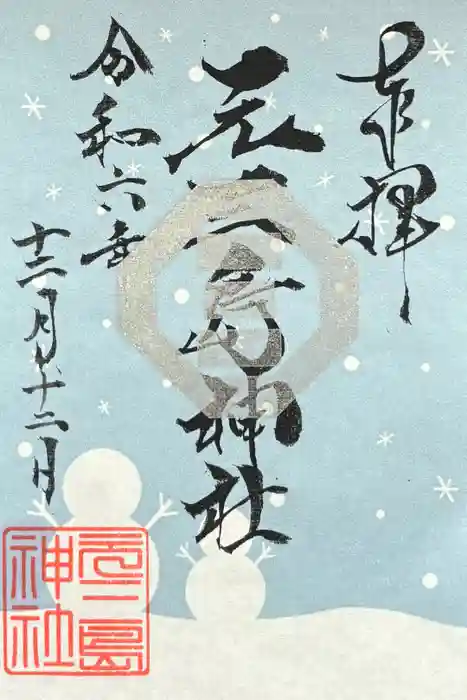 奉拝
元三島神社
令和六年
十二月十二日
元三島
神社